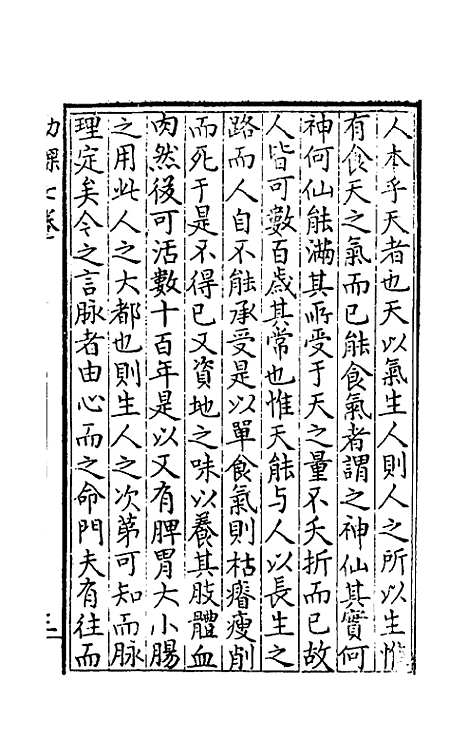 人本乎天者也天以氣生人則人之所以生惟
有食天之氣而已能食氣者謂之神仙其實何
神何仙能滿其所受于天之量不夭折而已故
人皆可數百歲其常也惟天能与人以長生之
路而人自不能承受是以單食氣則枯瘠瘦削
而死于是不得已又資地之味以養其肢體血
肉然後可活數十百年是以又有脾胃大小腸
之用此人之大都也則生人之次苐可知而脉
理定矣今之言脉者由心而之命門夫有往而